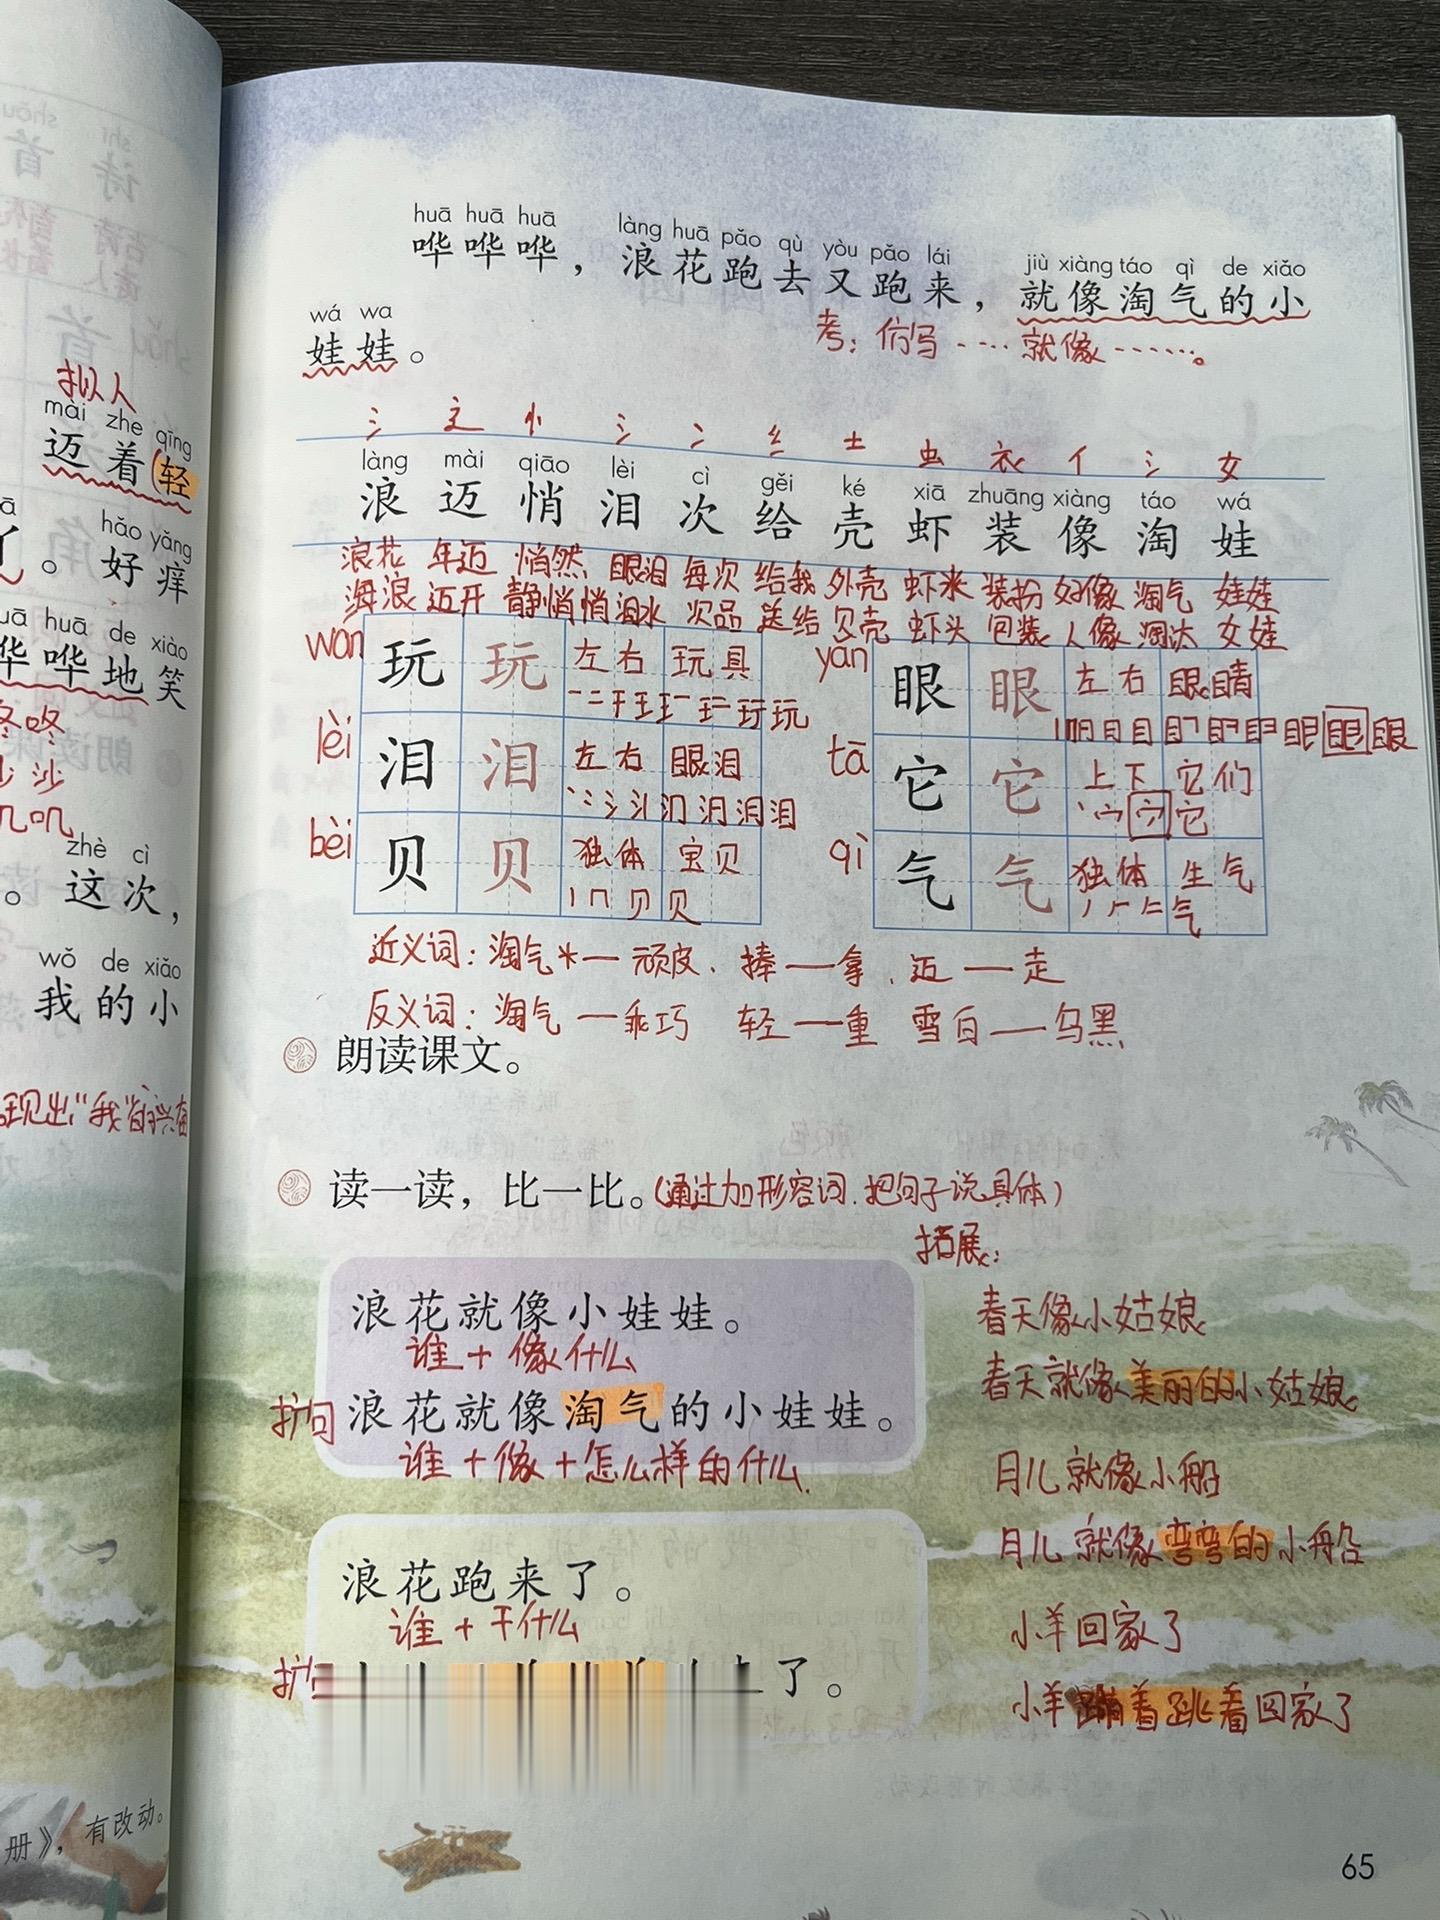 拟人
mài zhe qīng
迈着(轻
hǎo yǎng
丫。好痒
huā huā de xiào
哗哗地笑
咚咚
沙沙
叽叽
zhè cì
。这次，
wǒ de xiǎo
我的小
现出"我"的兴奋
册》，有改动。
huā huā huā làng huā pǎo qù yòu pǎo lái jiù xiàng táo qì de xiǎo
哗哗哗，浪花跑去又跑来，就像淘气的小
wá wa
娃娃。
考：仿写……就像……。
氵 辶 忄 氵 冫 纟 士 虫 衣 亻 氵 女
làng mài qiāo lèi cì gěi ké xiā zhuāng xiàng táo wá
浪 迈 悄 泪 次 给 壳 虾 装 像 淘 娃
浪花 年迈 悄然 眼泪 每次 给我 外壳 虾米 装扮 好像 淘气 娃娃
海浪 迈开 静悄悄 泪水 次品 送给 贝壳 虾头 包装 人像 淘汰 女娃
wán 玩 玩 左右 玩具
yǎn 眼 眼 左右 眼睛
lèi 泪 泪 左右 眼泪
tā 它 它 上下 它们
bèi 贝 贝 独体 宝贝
qì 气 气 独体 生气
近义词：淘气*—顽皮、捧—拿、迈—走
反义词：淘气—乖巧 轻—重 雪白—乌黑
朗读课文。
读一读，比一比。(通过加形容词、把句子说具体)
拓展：
浪花就像小娃娃。
谁+像什么
扩句 浪花就像淘气的小娃娃。
谁+像+怎么样的什么
浪花跑来了。
谁+干什么
扩
了。
春天像小姑娘
春天就像美丽的小姑娘
月儿就像小船
月儿就像弯弯的小船
小羊回家了
小羊蹦着跳着回家了
65